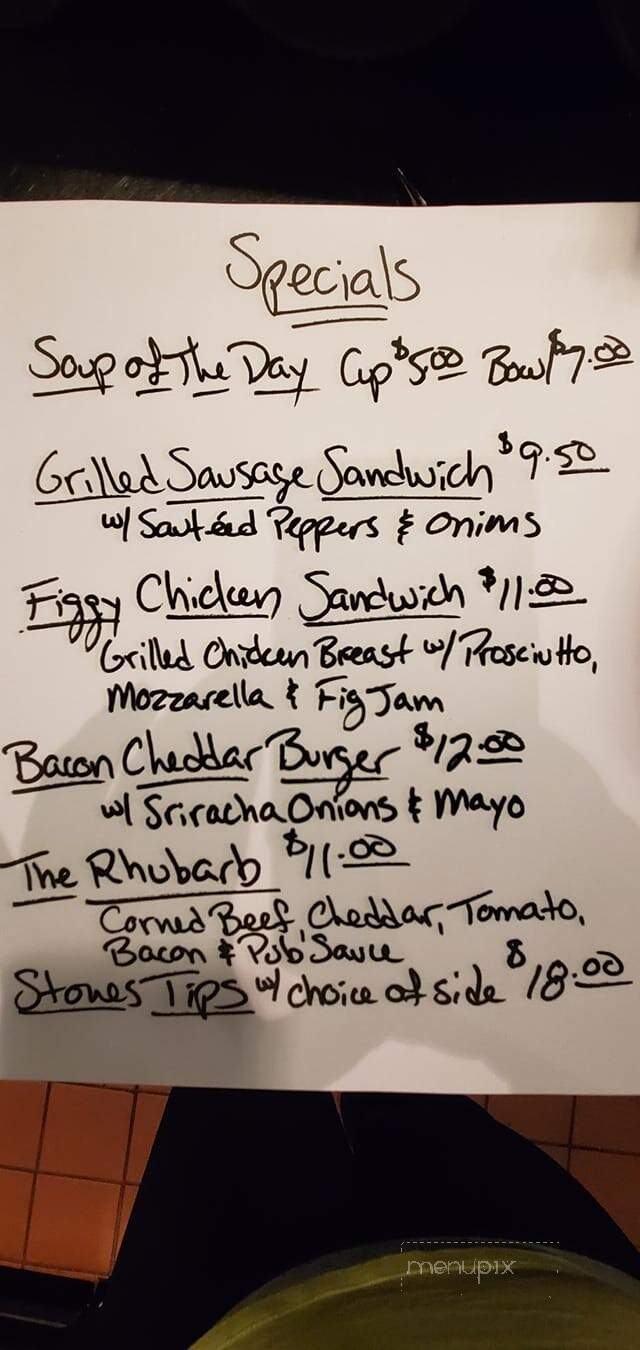 Specials
Soup of The Day Cup $5.00 Bowl $7.00
Grilled Sausage Sandwich $9.50
w/ Sautéed Peppers & Onions
Figgy Chicken Sandwich $11.00
Grilled Chicken Breast w/ Prosciutto,
Mozzarella & Fig Jam
Bacon Cheddar Burger $12.00
w/ Sriracha Onions & Mayo
The Rhubarb $11.00
Corned Beef, Cheddar, Tomato,
Bacon & Pub Sauce
Stones Tips w/ choice of side $18.00
menupix